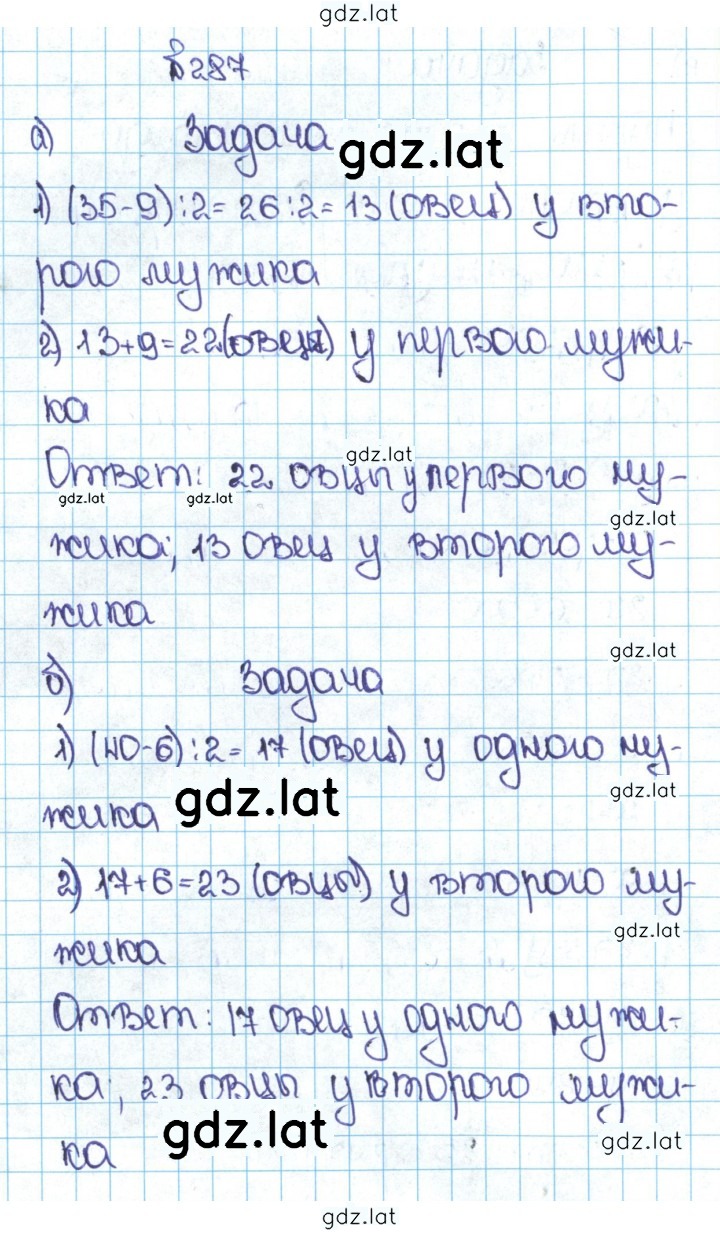 gdz.lat
№287
а) Задача
gdz.lat
1) (35-9):2=26:2=13(овец) у вто-
рого мужика
2) 13+9=22(овец) у первого мужи-
ка
gdz.lat
Ответ: 22 овцы у первого му-
gdz.lat gdz.lat
gdz.lat
жика; 13 овец у второго му-
жика
gdz.lat
б) Задача
1) (40-6):2=17(овец) у одного му-
gdz.lat
жика gdz.lat
2) 17+6=23 (овцы) у второго му-
gdz.lat
жика
Ответ: 17 овец у одного мужи-
ка; 23 овцы у второго мужи-
gdz.lat gdz.lat
ка
gdz.lat